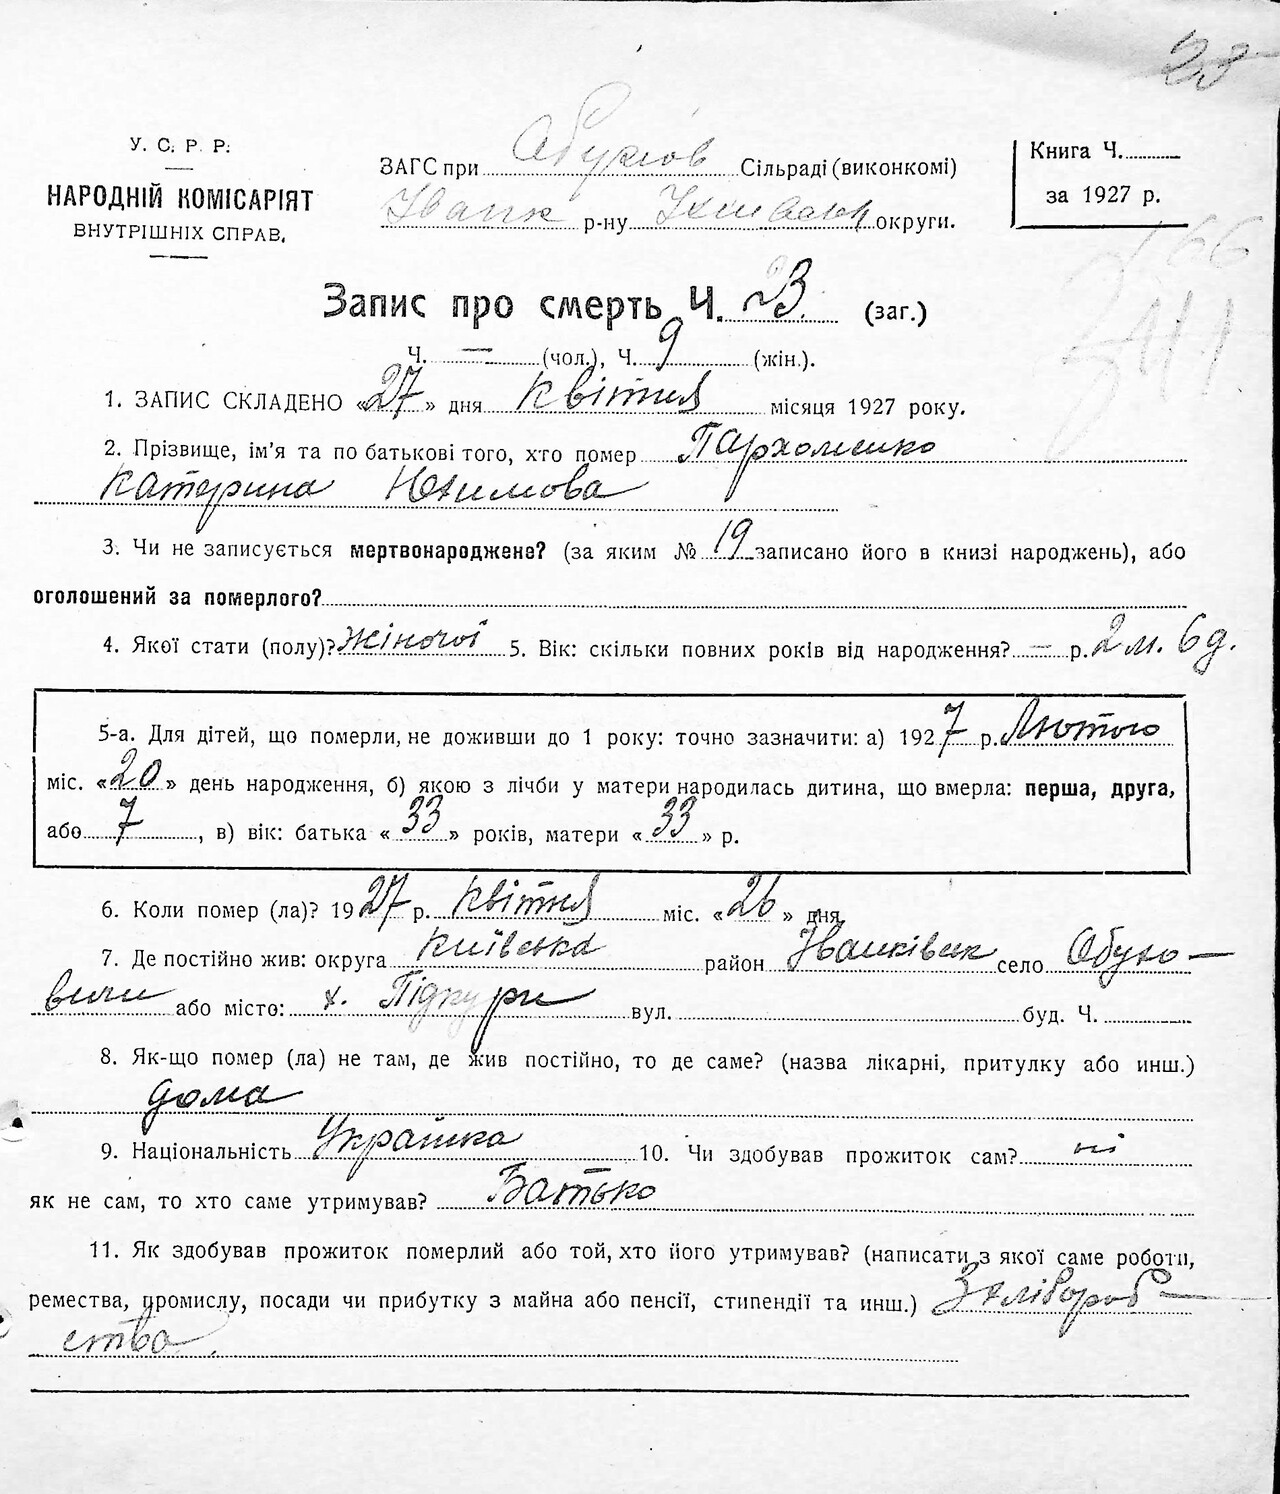 28
У. С. Р. Р.
НАРОДНІЙ КОМІСАРІЯТ
ВНУТРІШНІХ СПРАВ.
ЗАГС при Обухов Сільраді (виконкомі)
Іванк р-ну Київськ округи.
Книга Ч.
за 1927 р.
Запис про смерть Ч. 23. (заг.)
Ч. — (чол.), Ч. 9 (жін.).
1. ЗАПИС СКЛАДЕНО «27» дня Квітня місяця 1927 року.
2. Прізвище, ім'я та по батькові того, хто помер Пархоменко
Катерина Юхимова
3. Чи не записується мертвонароджене? (за яким № 19 записано його в книзі народжень), або
оголошений за померлого?
4. Якої стати (полу)? Жіночої 5. Вік: скільки повних років від народження? — р. 2 м. 6 д.
5-а. Для дітей, що померли, не доживши до 1 року: точно зазначити: а) 1927 р. Лютого
міс. «20» день народження, б) якою з лічби у матери народилась дитина, що вмерла: перша, друга,
або 7, в) вік: батька «33» років, матери «33» р.
6. Коли помер (ла)? 1927 р. Квітня міс. «26» дня
7. Де постійно жив: округа Київська район Іванківськ село Обухо-
вичи або місто: х. Підкури вул. буд. Ч.
8. Як-що помер (ла) не там, де жив постійно, то де саме? (назва лікарні, притулку або инш.)
дома
9. Національність Українка 10. Чи здобував прожиток сам? ні
як не сам, то хто саме утримував? Батько
11. Як здобував прожиток померлий або той, хто його утримував? (написати з якої саме роботи,
ремества, промислу, посади чи прибутку з майна або пенсії, стипендії та инш.) Хлібороб-
ства.